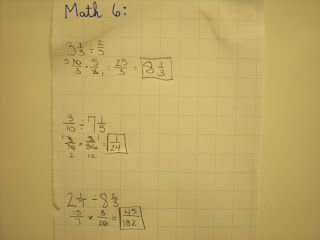 Math 6:
3 1/3 ÷ 2/5
5 10/3 · 5/2 1 = 25/3 = 8 1/3
3/10 ÷ 7 1/5
1 3/10 × 5/36 1 = 1/24
2 12
2 1/7 ÷ 8 2/3
15/7 × 3/26 = 45/182